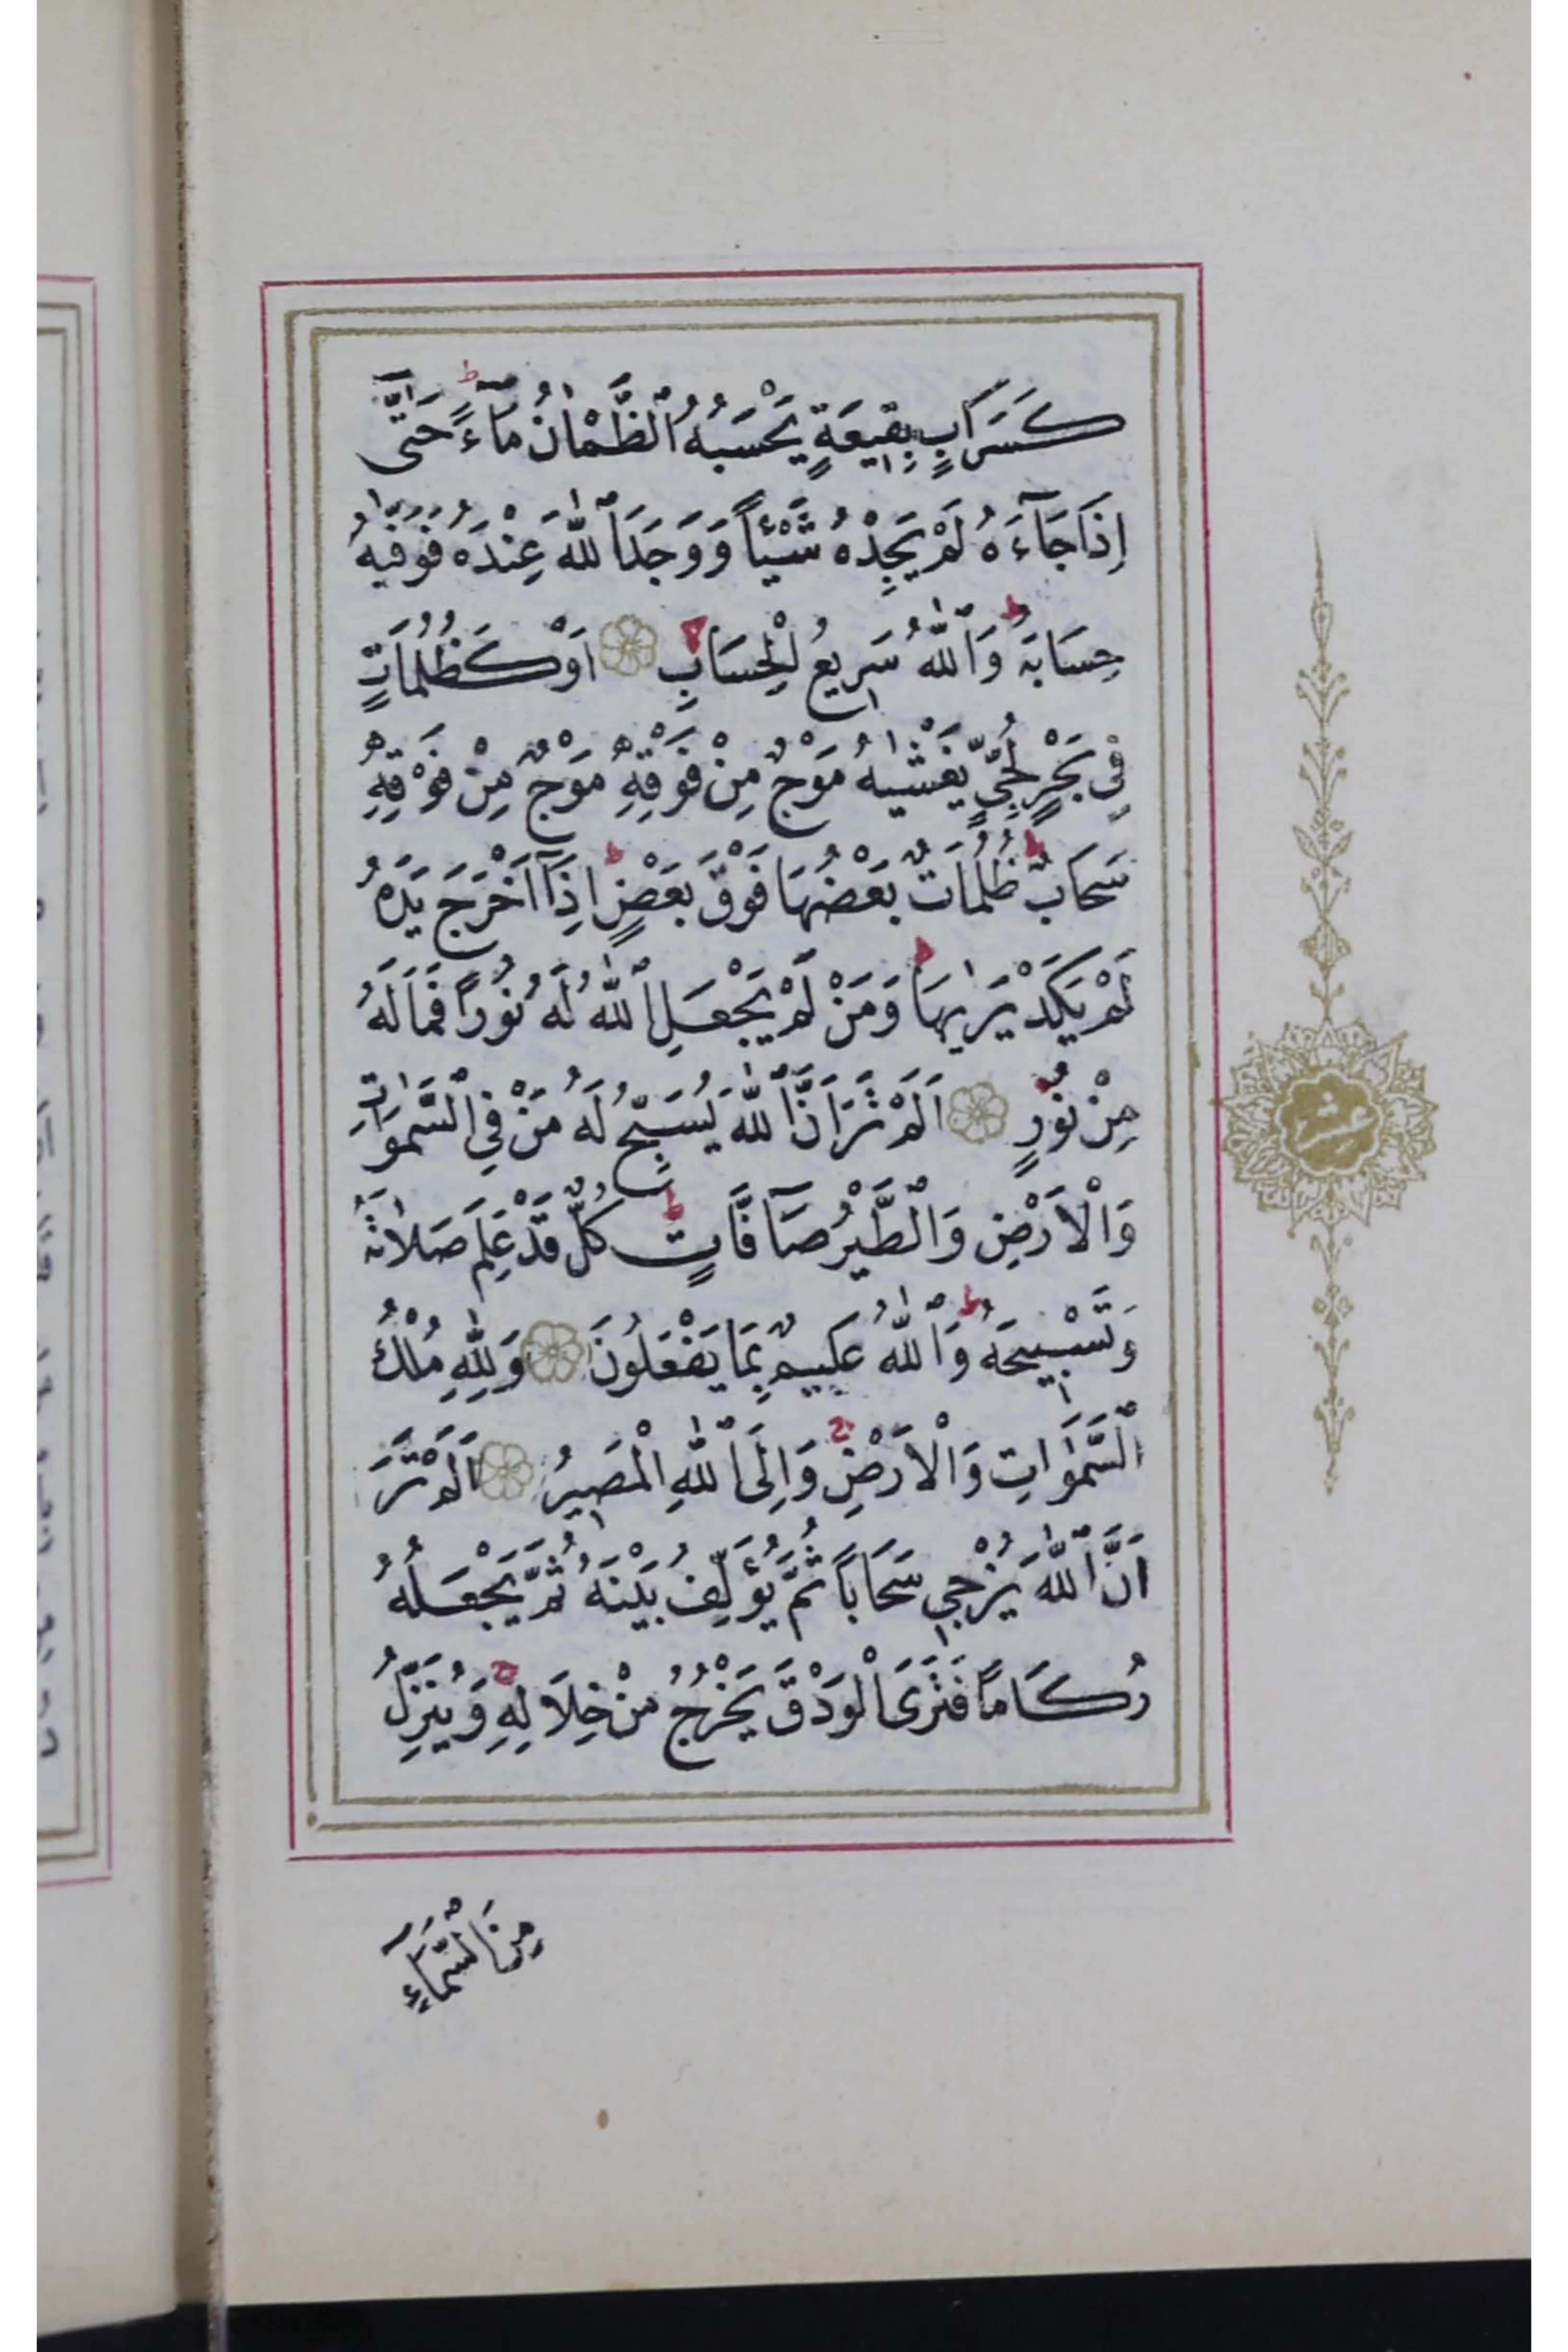 كَسَرَابٍ بِقِيعَةٍ يَحْسَبُهُ ٱلظَّمْاٰنُ مَآءً ط حَتّٰٓى
اِذَا جَآءَهُ لَمْ يَجِدْهُ شَيْئاً وَوَجَدَ ٱللّٰهَ عِنْدَهُ فَوَفّٰيهُ
حِسَابَهُ ط وَٱللّٰهُ سَرِيعُ الْحِسَابِ اَوْ كَظُلُمَاتٍ
فِي بَحْرٍ لُجِّيٍّ يَغْشٰيهُ مَوْجٌ مِنْ فَوْقِهِ مَوْجٌ مِنْ فَوْقِهِ
سَحَابٌ ط ظُلُمَاتٌ بَعْضُهَا فَوْقَ بَعْضٍ ط اِذَآ اَخْرَجَ يَدَهُ
لَمْ يَكَدْ يَرٰيهَا ط وَمَنْ لَمْ يَجْعَلِ ٱللّٰهُ لَهُ نُوراً فَمَا لَهُ
مِنْ نُورٍ اَلَمْ تَرَ اَنَّ ٱللّٰهَ يُسَبِّحُ لَهُ مَنْ فِي ٱلسَّمٰوَاتِ
وَالْاَرْضِ وَٱلطَّيْرُ صَآفَّاتٍ ط كُلٌّ قَدْ عَلِمَ صَلَاتَهُ
وَتَسْبِيحَهُ ط وَٱللّٰهُ عَلِيمٌ بِمَا يَفْعَلُونَ وَلِلّٰهِ مُلْكُ
ٱلسَّمٰوَاتِ وَالْاَرْضِ ج وَاِلَى ٱللّٰهِ الْمَصِيرُ اَلَمْ تَرَ
اَنَّ ٱللّٰهَ يُزْجِي سَحَاباً ثُمَّ يُؤَلِّفُ بَيْنَهُ ثُمَّ يَجْعَلُهُ
رُكَاماً فَتَرَى الْوَدْقَ يَخْرُجُ مِنْ خِلَالِهِ ج وَيُنَزِّلُ
مِنَ ٱلسَّمَآءِ
عشر